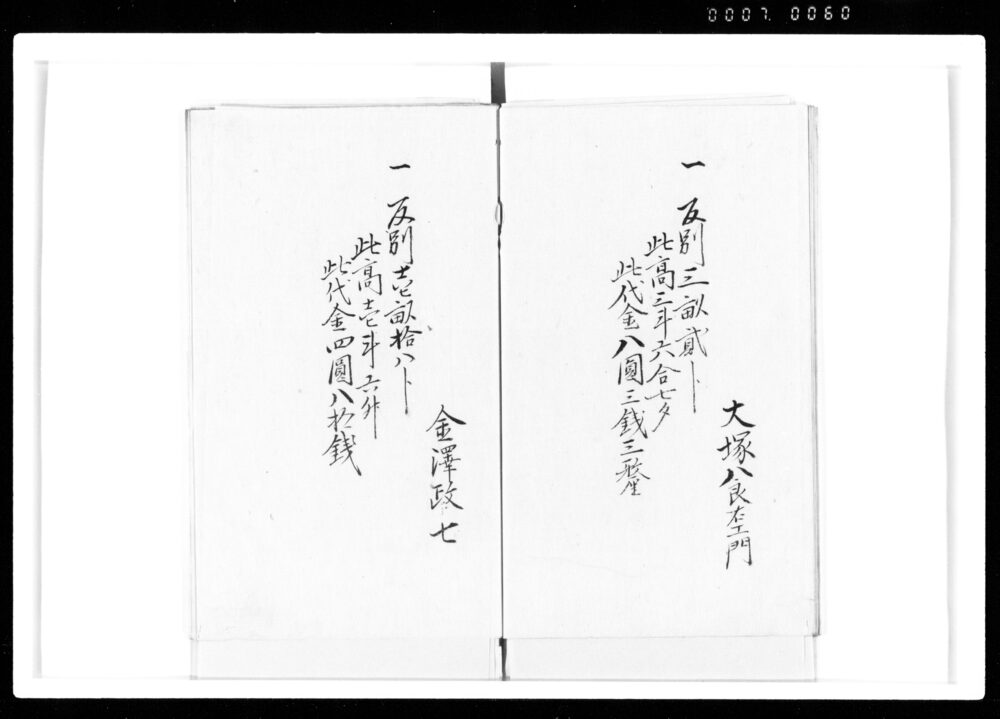 0007. 0060
大塚八良左エ門
一 反別三畝貳卜
此高三斗六合七夕
此代金八圓三銭三釐
金澤政七
一 反別壱畝拾八卜
此高壱斗六升
此代金四圓八拾銭